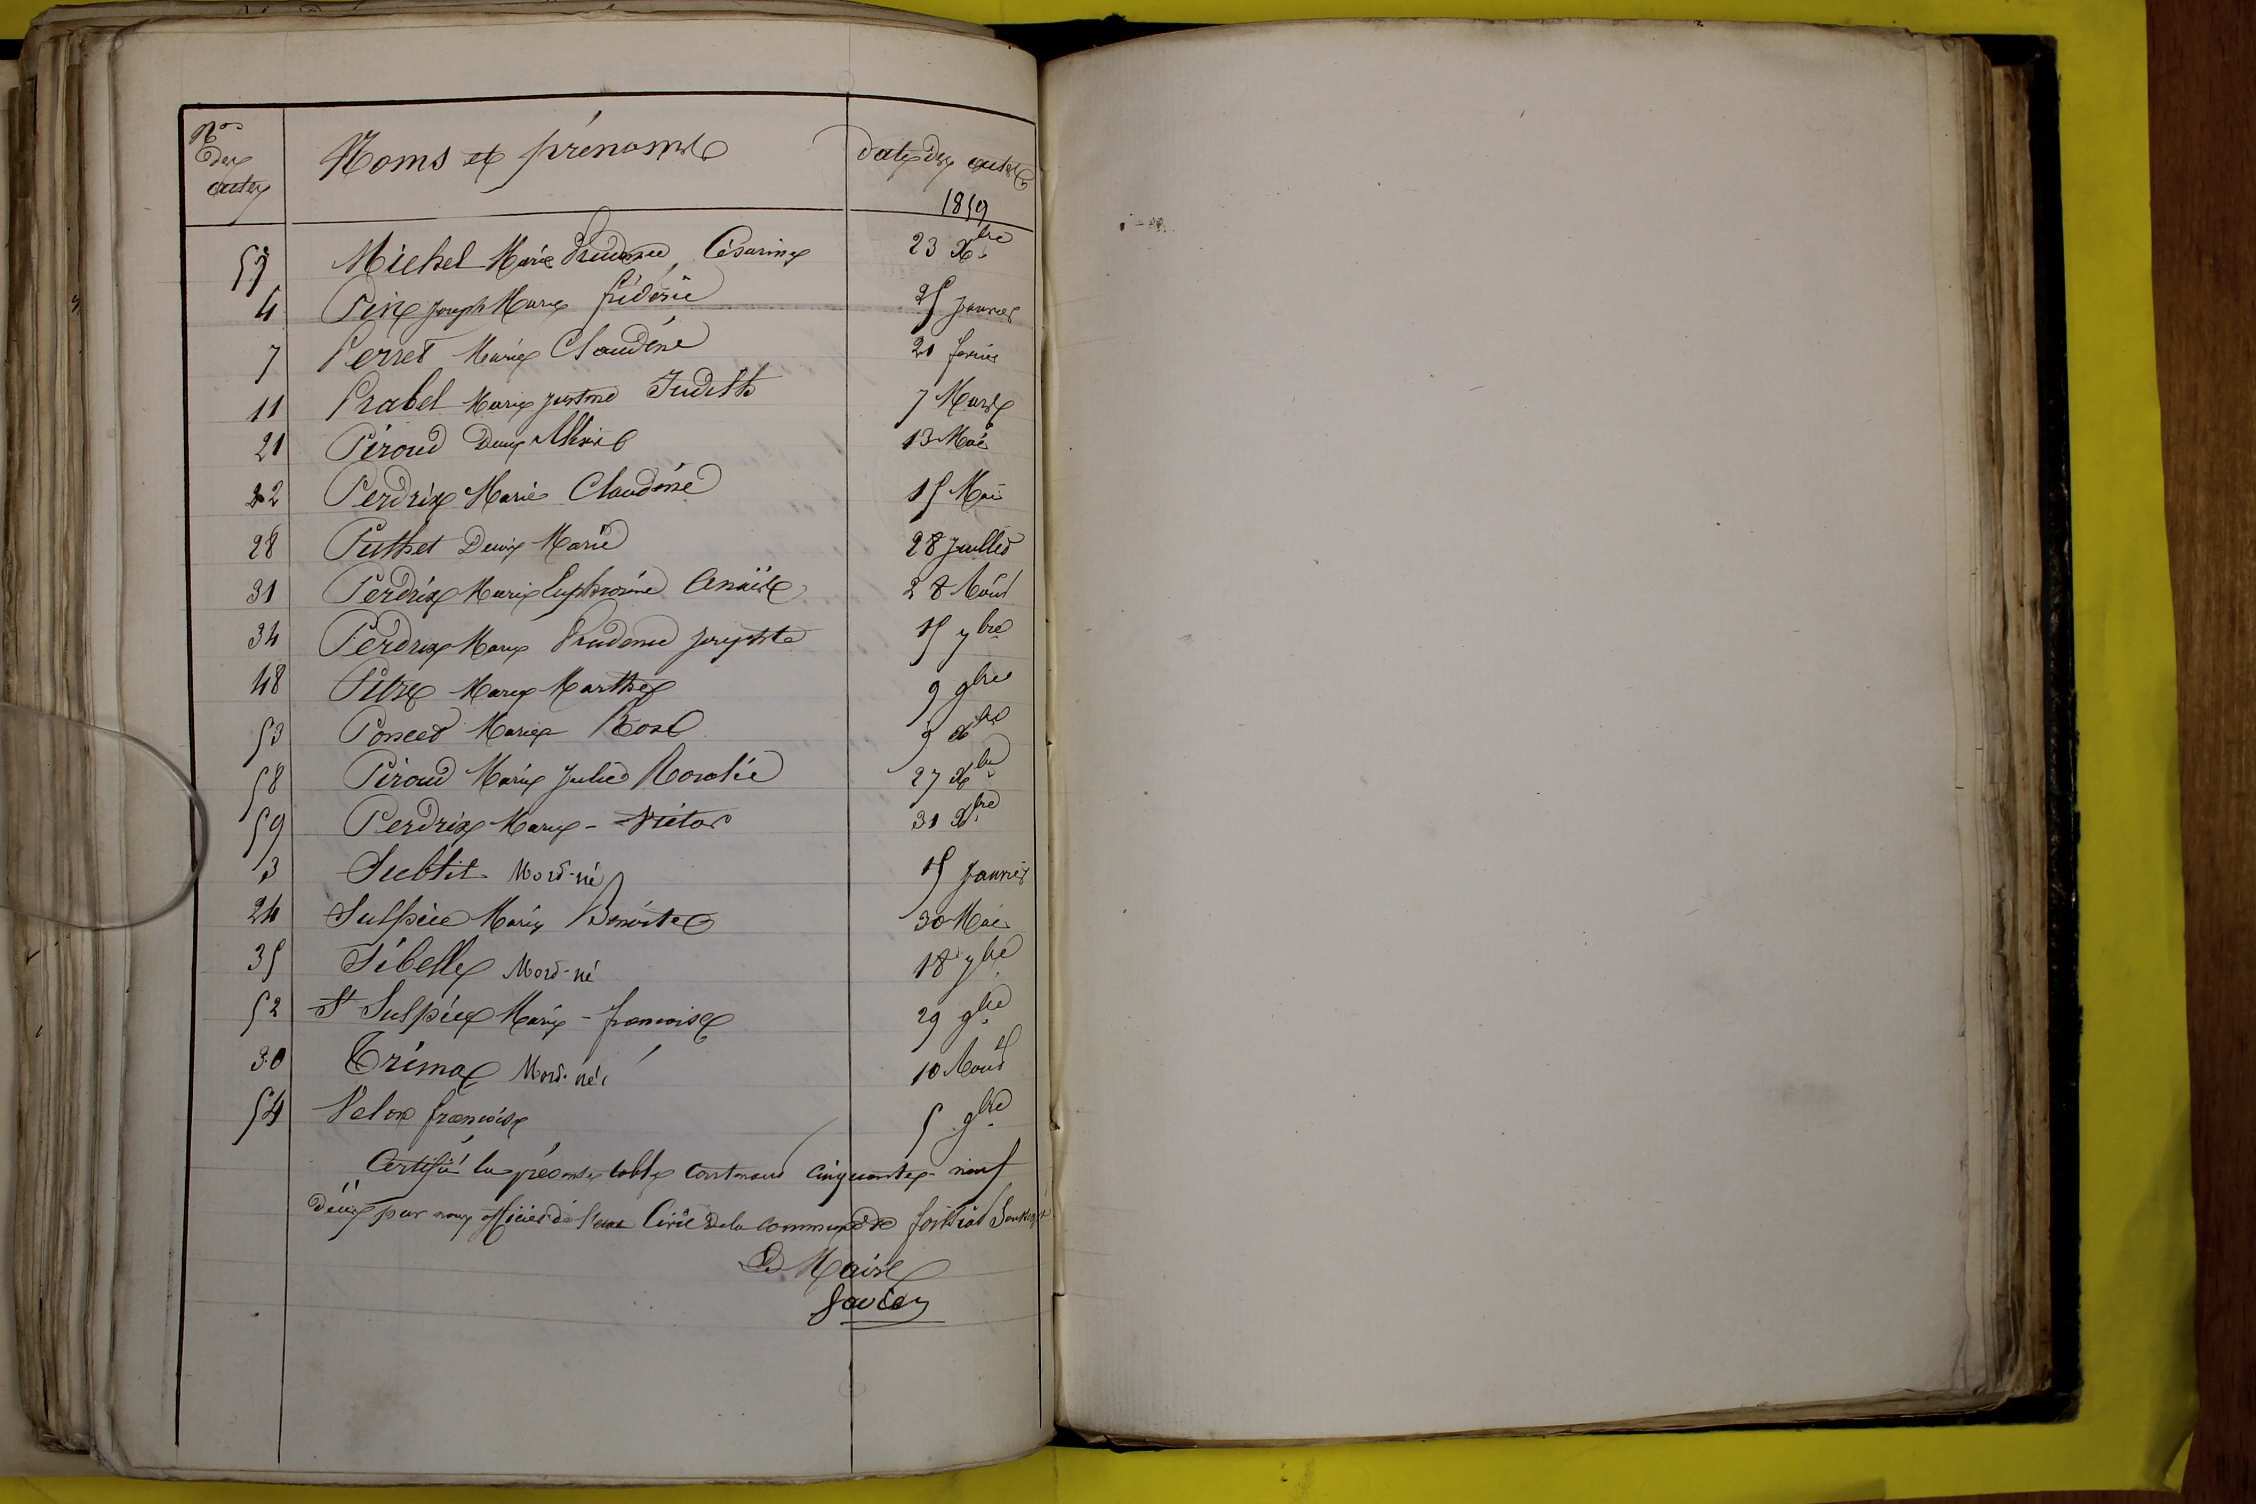 Nos des actes
Noms et prénoms
Date des actes
1859
57 Michel Marie Prudence Césarine 23 Xbre
4 Pin Joseph Marie frédéric 25 janvier
7 Perret Marie Claudine 21 février
11 Prabel Marie justine Judith 7 Mars
21 Péroud 13 Mai
22 Perdrix Marie Claudine 15 Mai
28 Puthet Denis Marie 28 juillet
31 Perdrix Marie Euphrosine Anaïs 28 Août
34 Perdrix Marie Prudence josephte 15 7bre
48 Marie Marthe 9 9bre
53 Poncet Marie Rose 3 Xbre
58 Péroud Marie Julie Rosalie 27 Xbre
59 Perdrix Marie - Victor 31 Xbre
3 Subtit Mord-né 15 janvier
24 Sulpice Marie Benoite 30 Mai
35 Sibelle Mord-né 18 7bre
52 St Sulpice Marie - françoise 29 9bre
30 Mord-né 10 Août
54 françoise 5 9bre
Certifié la présente table contenant cinquante-neuf
décès par nous officier de l'état Civil de la commune de
Le Maire